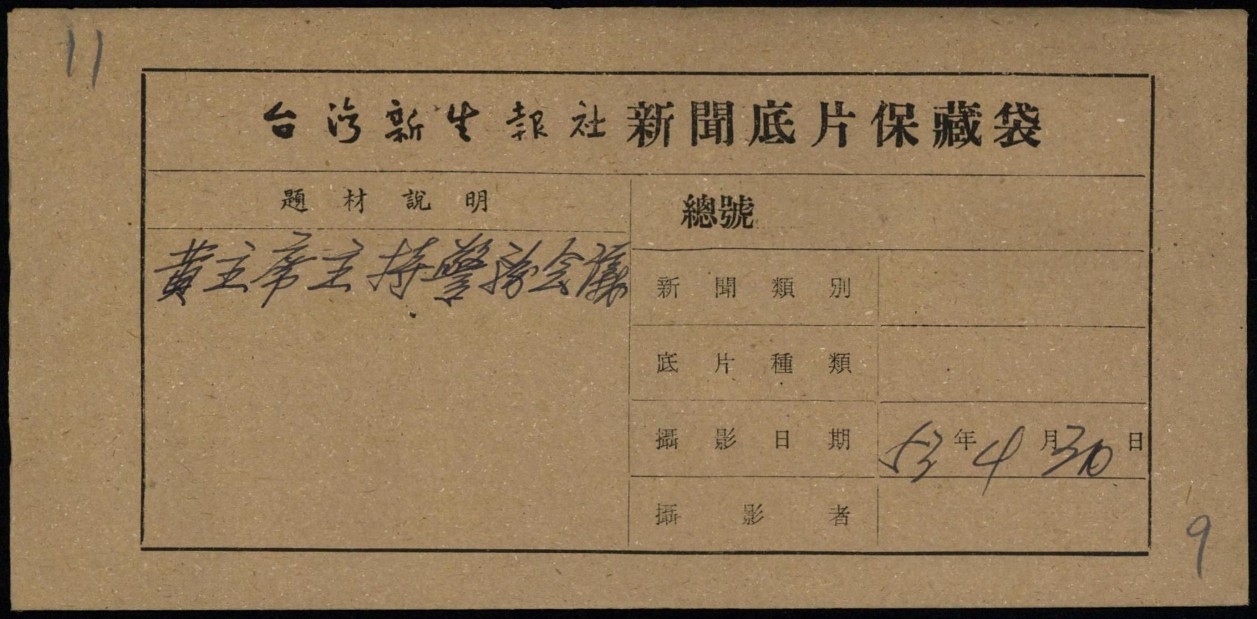 11
台湾新生報社新聞底片保藏袋
題材說明
黃主席主持警務会議
總號
新聞類別
底片種類
攝影日期 53年4月30日
攝影者
9